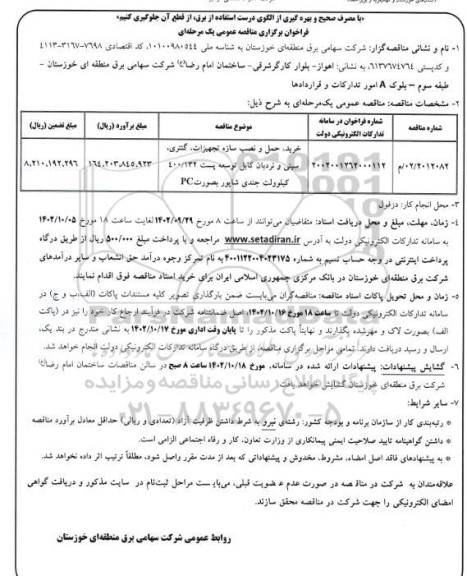 «با مصرف صحیح و بهره گیری از الگوی درست استفاده از برق، از قطع آن جلوگیری کنیم»
فراخوان برگزاری مناقصه عمومی یک مرحله‌ای
۱- نام و نشانی مناقصه‌گزار: شرکت سهامی برق منطقه‌ای خوزستان به شناسه ملی ۱۰۱۰۰۹۸۰۵۴۴، کد اقتصادی ۷۶۹۸-۳۱۶۷-۴۱۱۳
و کدپستی ۶۱۳۷۶۷۴۷۶۴، به نشانی: اهواز- بلوار کارگرشرقی- ساختمان امام رضا(ع) شرکت سهامی برق منطقه ای خوزستان -
طبقه سوم – بلوک A امور تدارکات و قراردادها
۲- مشخصات مناقصه: مناقصه عمومی یک‌مرحله‌ای به شرح ذیل:
شماره مناقصه
شماره فراخوان در سامانه تدارکات الکترونیکی دولت
موضوع مناقصه
مبلغ برآورد (ریال)
مبلغ تضمین (ریال)
۰۲/۲۰۱۲۰۸۲/م
۲۰۰۲۰۰۱۲۶۲۰۰۰۱۱۲
خرید، حمل و نصب سازه تجهیزات، گنتری،
سینی و نردبان کابل توسعه پست ۴۰۰/۱۳۲
کیلوولت جندی شاپور بصورت PC
۱۶۴,۲۰۳,۸۴۵,۹۲۳
۸,۲۱۰,۱۹۲,۲۹۶
۳- محل انجام کار: دزفول
۴- زمان، مهلت، مبلغ و محل دریافت اسناد: متقاضیان می‌توانند از ساعت ۸ مورخ ۱۴۰۲/۰۹/۲۹ لغایت ساعت ۱۸ مورخ ۱۴۰۲/۱۰/۰۵
به سامانه تدارکات الکترونیکی دولت به آدرس www.setadiran.ir مراجعه و با پرداخت مبلغ ۵۰۰/۰۰۰ ریال از طریق درگاه
پرداخت اینترنتی در وجه حساب تسیم به شماره ۴۰۰۱۱۲۲۰۰۴۰۲۳۱۷۵ به نام تمرکز وجوه درآمد حق انشعاب و سایر درآمدهای
شرکت برق منطقه‌ای خوزستان در بانک مرکزی جمهوری اسلامی ایران برای خرید اسناد مناقصه فوق اقدام نمایند.
۵- زمان و محل تحویل پاکات اسناد مناقصه: مناقصه‌گران می‌بایست ضمن بارگذاری تصویر کلیه مستندات پاکات (الف،ب و ج) در
سامانه تدارکات الکترونیکی دولت تا ساعت ۱۸ مورخ ۱۴۰۲/۱۰/۱۶، اصل ضمانتنامه شرکت در فرآیند ارجاع کار خود را نیز در (پاکت
الف) بصورت لاک و مهرشده بگذارند و نهایتاً پاکت مذکور را تا پایان وقت اداری مورخ ۱۴۰۲/۱۰/۱۷ به نشانی مندرج در بند یک،
ارسال و رسید دریافت دارند. تمامی مراحل برگزاری مناقصه، از طریق درگاه سامانه تدارکات الکترونیکی دولت انجام خواهد شد.
۶- گشایش پیشنهادات: پیشنهادات ارائه شده در سامانه، مورخ ۱۴۰۲/۱۰/۱۸ ساعت ۸ صبح در سالن مناقصات ساختمان امام رضا(ع)
شرکت برق منطقه‌ای خوزستان گشایش خواهد یافت.
۷- سایر شرایط:
* رتبه‌بندی کار از سازمان برنامه و بودجه کشور: رشته‌ی نیرو به شرط داشتن ظرفیت آزاد (تعدادی و ریالی) حداقل معادل برآورد مناقصه
* داشتن گواهینامه تایید صلاحیت ایمنی پیمانکاری از وزارت تعاون، کار و رفاه اجتماعی الزامی است.
* به پیشنهادهای فاقد اصل امضاء، مشروط، مخدوش و پیشنهاداتی که بعد از مدت مقرر واصل شود، مطلقاً ترتیب اثر داده نخواهد شد.
علاقه‌مندان به شرکت در مناقصه در صورت عدم عضویت قبلی، می‌بایست مراحل ثبت‌نام در سایت مذکور و دریافت گواهی
امضای الکترونیکی را جهت شرکت در مناقصه محقق سازند.
روابط عمومی شرکت سهامی برق منطقه‌ای خوزستان
۰۲۱-۸۸۳۴۹۶۷۰-۵